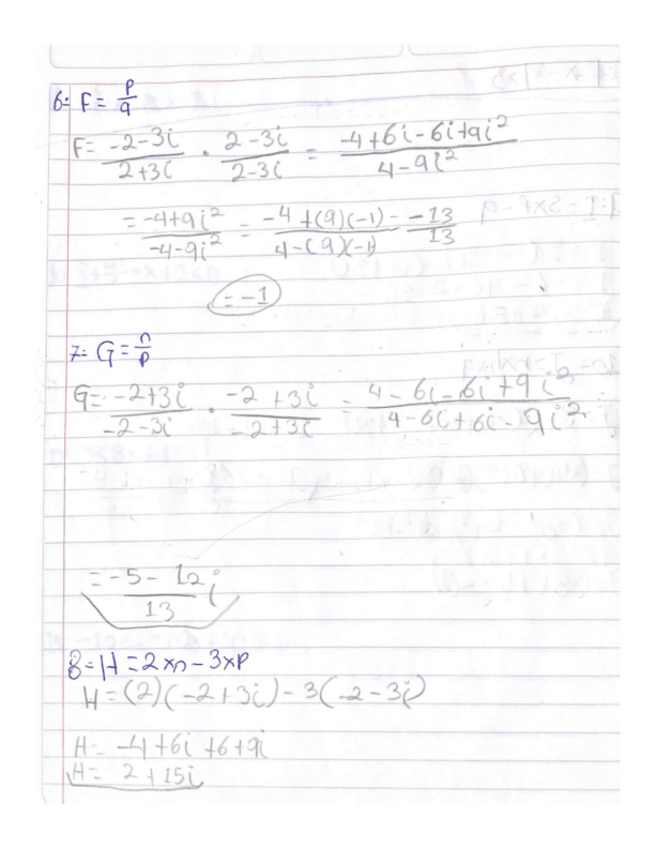 6= F = p/q
F = -2-3i/2+3i · 2-3i/2-3i = -4+6i-6i+9i²/4-9i²
= -4+9i²/-4-9i² = -4+(9)(-1)/4-(9)(-1) = -13/13
= -1
7= G = n/p
G = -2+3i/-2-3i · -2+3i/-2+3i = 4-6i-6i+9i²/4-6i+6i-9i²
= -5-12i/13 i
8= H = 2xn-3xp
H = (2)(-2+3i)-3(-2-3i)
H = -4+6i+6+9i
H = 2+15i